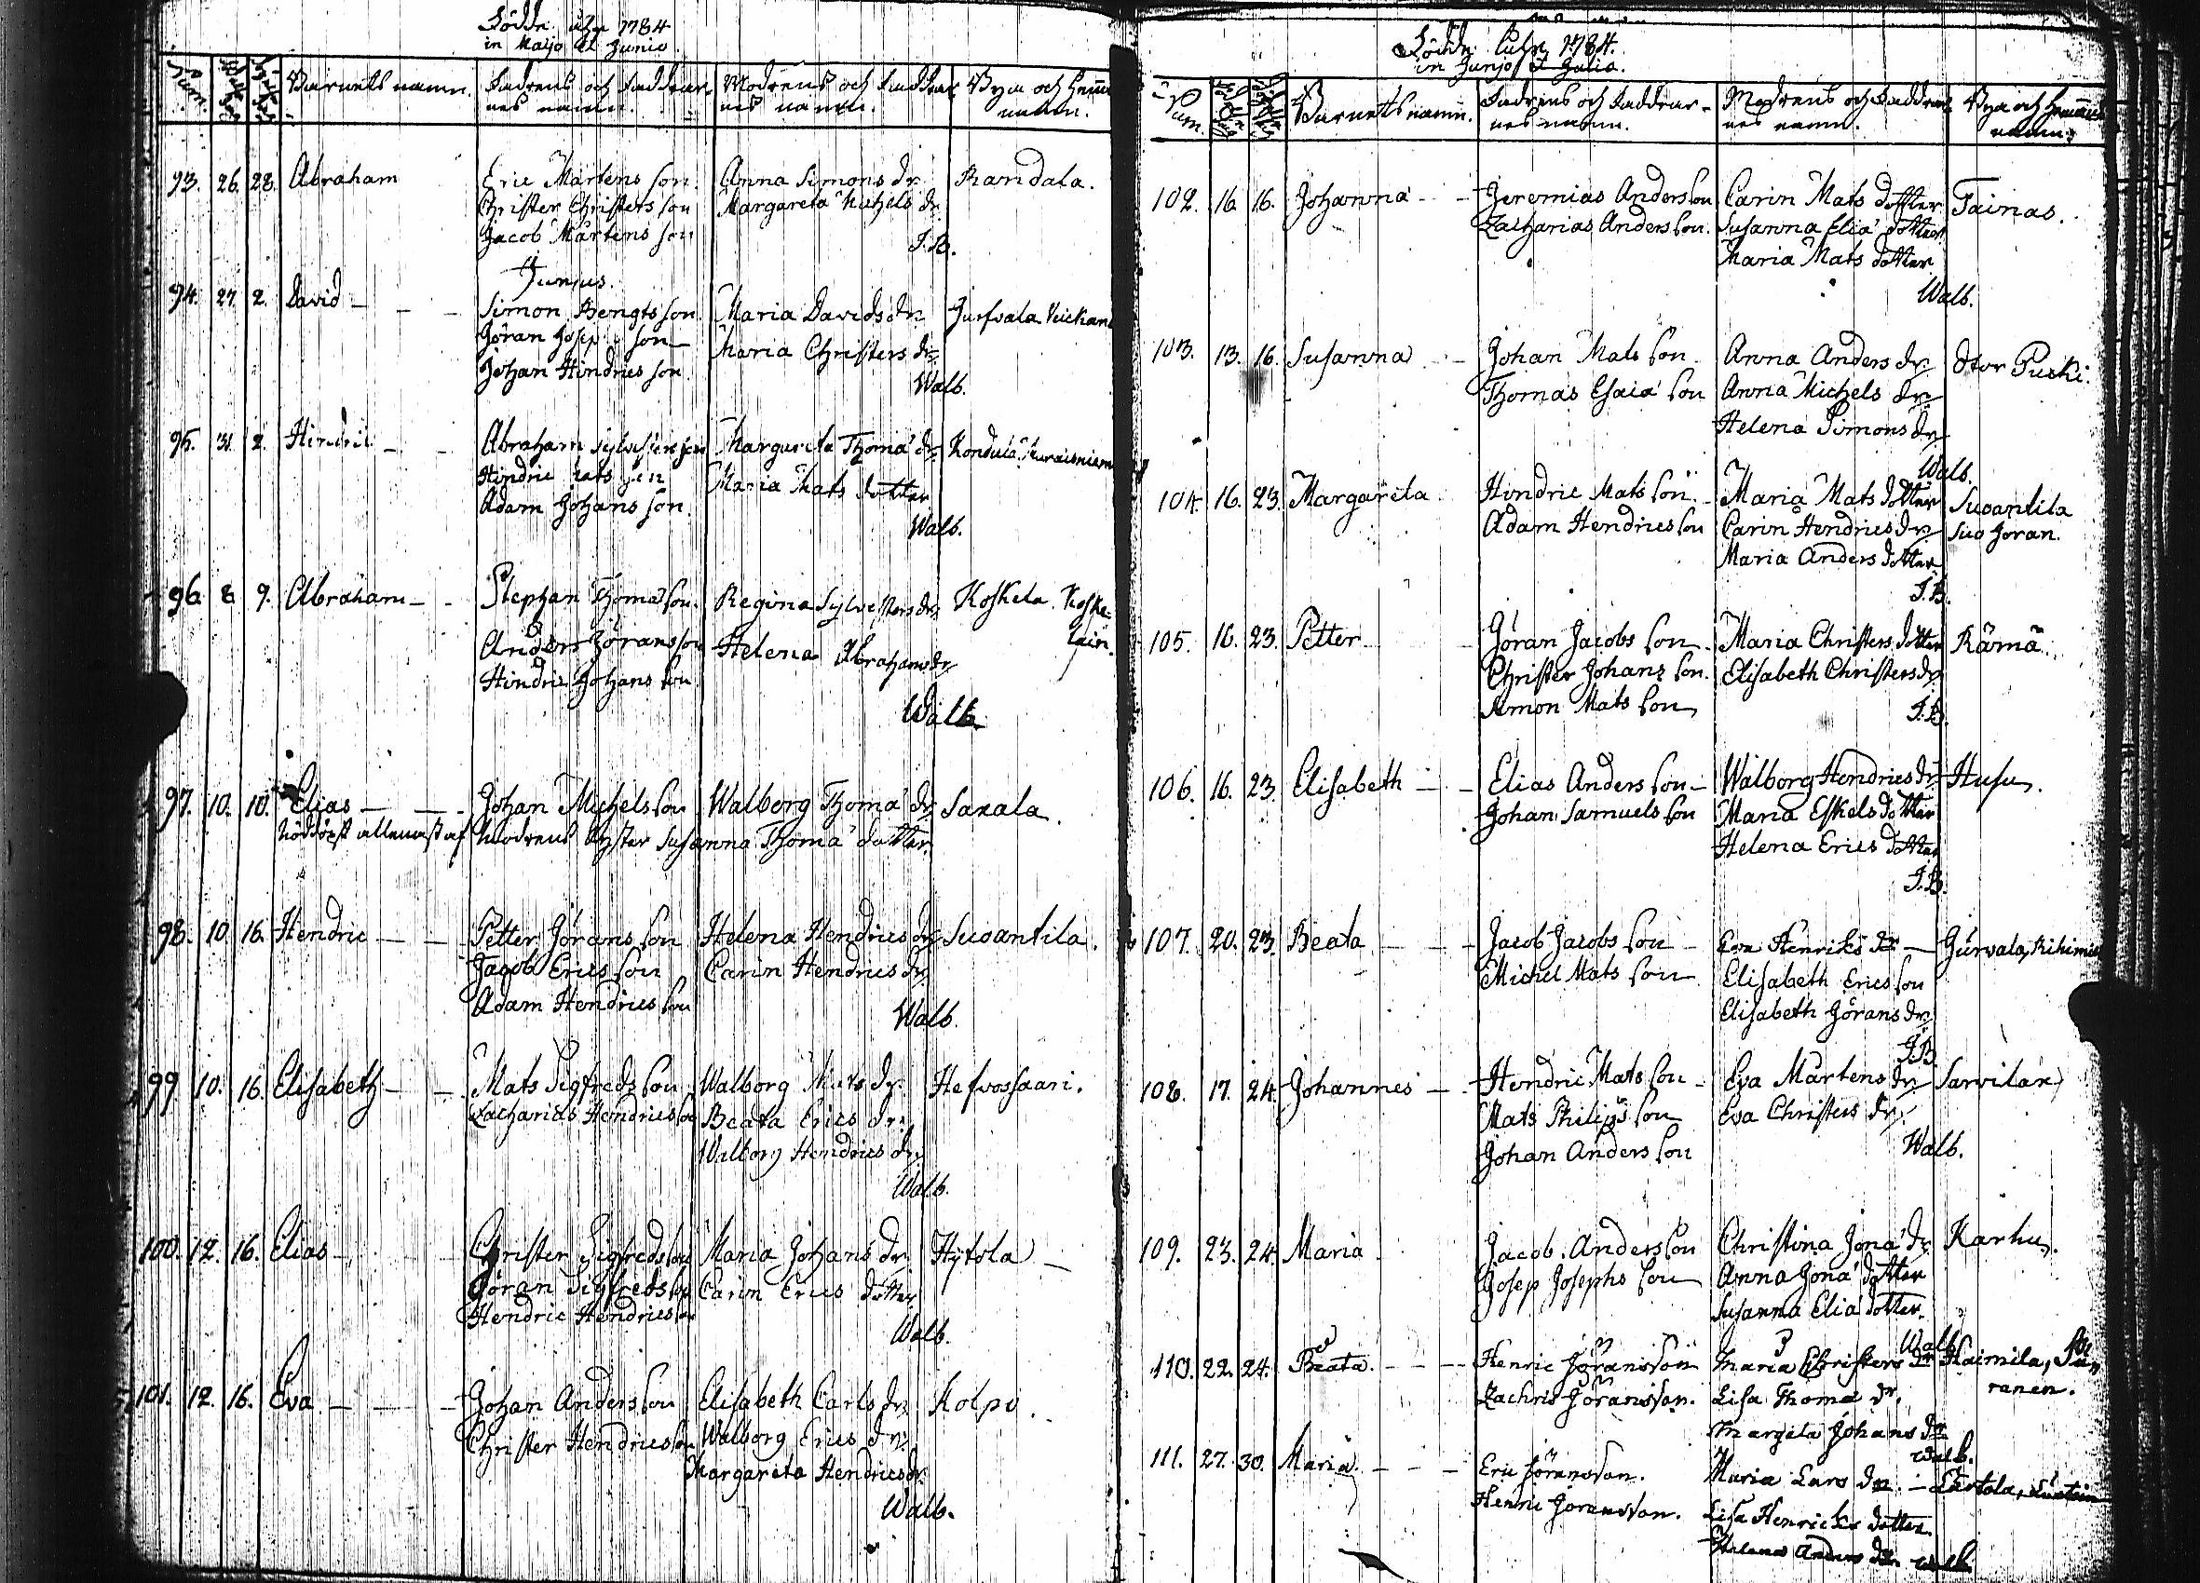 Födde åhr 1784
in Majo et Junio
Num.
Barnets namn.
Fadrens och Faddrar-
nes namn.
Modrens och Faddrar-
nes namn.
Bya och Hemm.
namn.
93. 26. 28. Abraham Eric Mårtens son. Anna Simons dr. Randala.
Christer Christers son Margareta Michels dr.
Jacob Mårtens son J.B.
Junius.
94. 27. 2. David Simon Bengts son Maria Davids dr. Jurfvala
Göran Josep son Maria Christers dr.
Johan Hindrics son Walb.
95. 31. 2. Hindric Abraham Margareta Thoma dr. Kondula
Hindric Mats son Maria Mats dotter
Adam Johans son. Walb.
96. 8. 9. Abraham Stephan Thoma son. Regina Sylvesters dr. Koskela. Koske-
lain.
Anders Görans son Helena Abrahams dr
Hindric Johans son Walb.
97. 10. 10. Elias Johan Michels son Walborg Thoma dr. Saxala.
Nöddöpt allenast af Modrens Syster Susanna Thoma dotter.
98. 10. 16. Hendric Petter Görans son Helena Hendrics dr. Suoantila.
Jacob Erics son Carin Hendrics dr.
Adam Hendrics son Walb.
99. 10. 16. Elisabeth Mats Sigfreds son Walborg Mats dr. Hefvossaari.
Zacharias Hendrics son Beata Erics dr.
Walborg Hendrics dr.
Walb.
100. 12. 16. Elias Christer Sigfreds son Maria Johans dr. Hytola
Göran Sigfreds son Carin Erics dotter
Hendric Hendrics son Walb.
101. 12. 16. Eva Johan Anders son Elisabeth Carls dr. Kolpo.
Christer Hendrics son Walborg Erics dr.
Margareta Hendrics dr.
Walb.
Födde åhr 1784.
in Junjo et Julio.
Num.
Barnets namn.
Fadrens och Faddrar-
nes namn.
Modrens och Faddrar-
nes namn.
Bya och Hemmans
namn.
102. 16. 16. Johanna Jeremias Anders son Carin Mats dotter Tainas.
Zacharias Anders son. Susanna Elia dotter
Maria Mats dotter
Walb.
103. 13. 16. Susanna Johan Mats son. Anna Anders dr. Stor Puski.
Thomas Esaia son Anna Michels dr.
Helena Simons dr.
Walb.
104. 16. 23. Margareta Hindric Mats son. Maria Mats dotter Suoantila
Adam Hendrics son Carin Hendrics dr. Suo Joran.
Maria Anders dotter
J.B.
105. 16. 23. Petter Göran Jacobs son Maria Christers dotter Rämä.
Christer Johans son. Elisabeth Christers dr.
Simon Mats son J.B.
106. 16. 23. Elisabeth Elias Anders son Walborg Hendrics dr. Husu.
Johan Samuels son Maria Eskels dotter
Helena Erics dotter
J.B.
107. 20. 23. Beata Jacob Jacobs son Eva Henriks dr. Jurvala, Rihimä
Michel Mats son Elisabeth Erics son
Elisabeth Görans dr.
J.B.
108. 17. 24. Johannes Hendric Mats son Eva Mårtens dr. Sarvilax
Mats Philips son Eva Christers dr.
Johan Anders son Walb.
109. 23. 24. Maria Jacob Anders son Christina Jona dr. Karhu.
Josep Josephs son Anna Jona dotter
Susanna Elia dotter.
Walb.
110. 22. 24. Beata. Henric Göransson Maria Christers dr. Haimila,
ranen.
Zachris Göransson. Lisa Thoma dr.
Margeta Johans dr
Walb.
111. 27. 30. Maria. Eric Göransson. Maria Lars dr.
Henric Göransson. Lisa Henricks dotter.
Helena Anders dr. Walb.